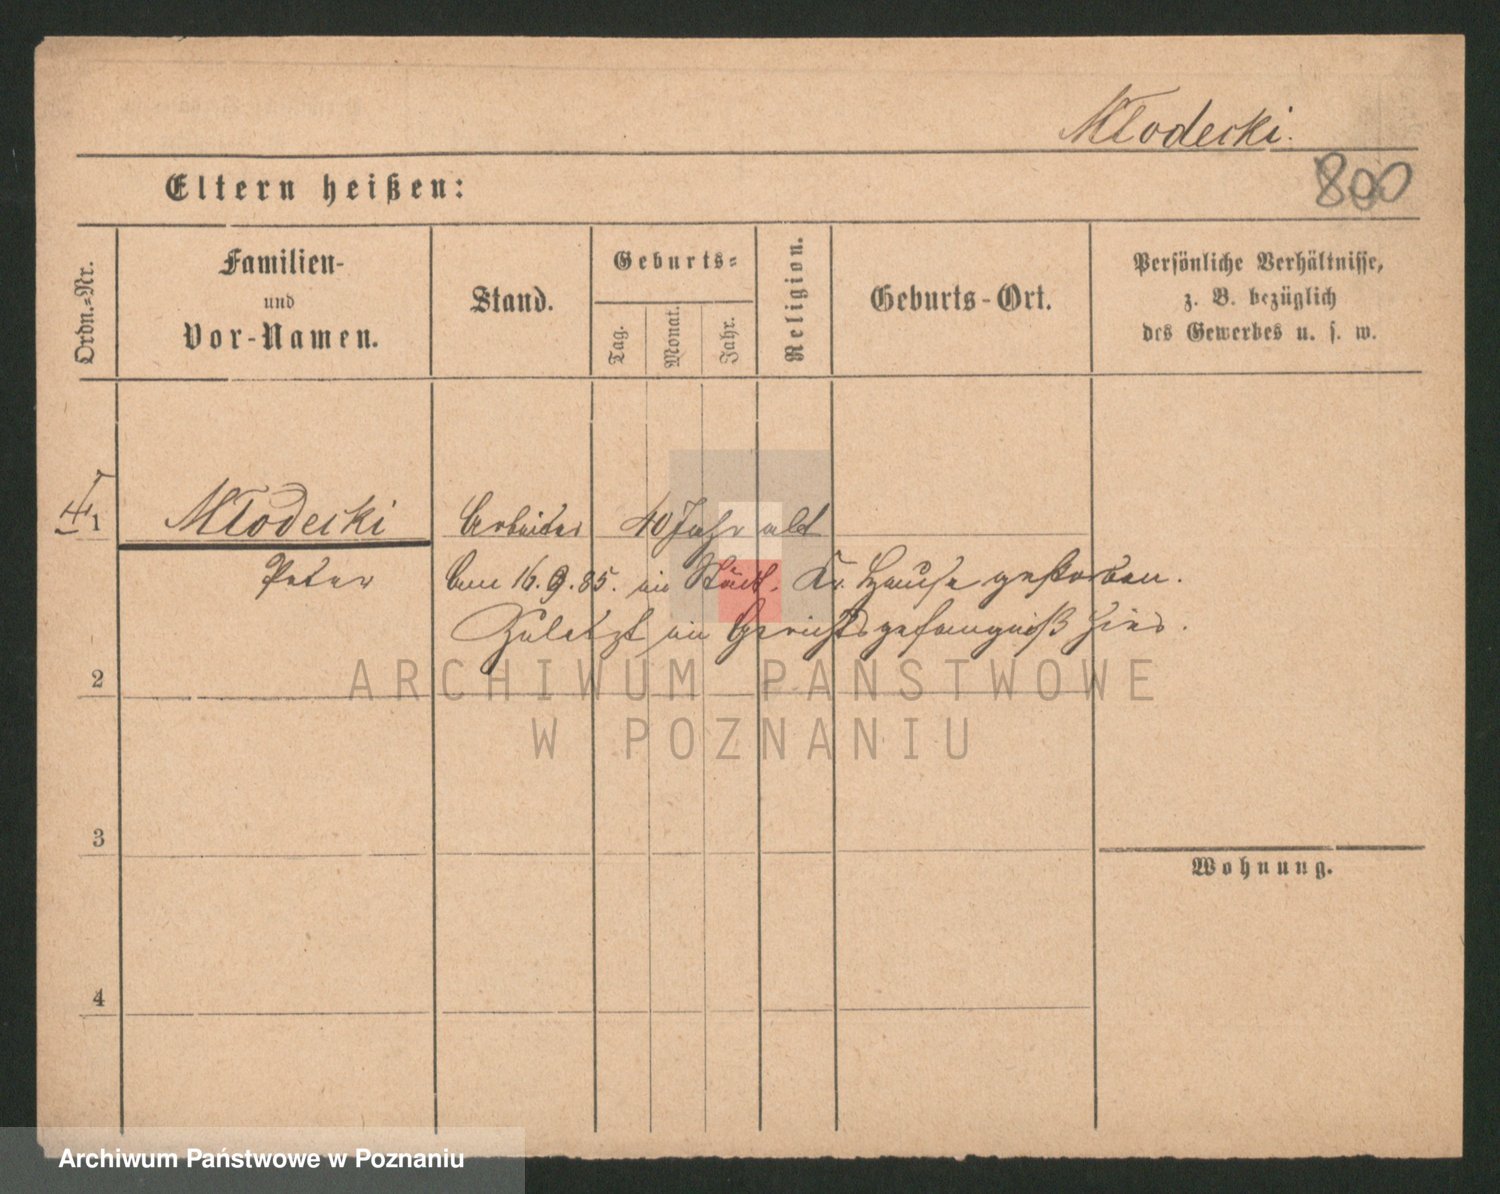 Młodecki.
800
Eltern heißen:
Ordn.=Nr.
Familien-
und
Vor-Namen.
Stand.
Geburts=
Tag.
Monat.
Jahr.
Religion.
Geburts-Ort.
Persönliche Verhältnisse,
z. B. bezüglich
des Gewerbes u. s. w.
1 Młodecki Arbeiter 40 Jahr alt
Peter am 16.9.85. im Städt. Kr. Hause gestorben.
Zuletzt im Gerichtsgefängniß hier.
ARCHIWUM PAŃSTWOWE
2
W POZNANIU
3
Wohnung.
4
Archiwum Państwowe w Poznaniu